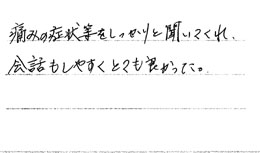 痛みの症状等をしっかりと聞いてくれ、
会話もしやすくとても良かった。